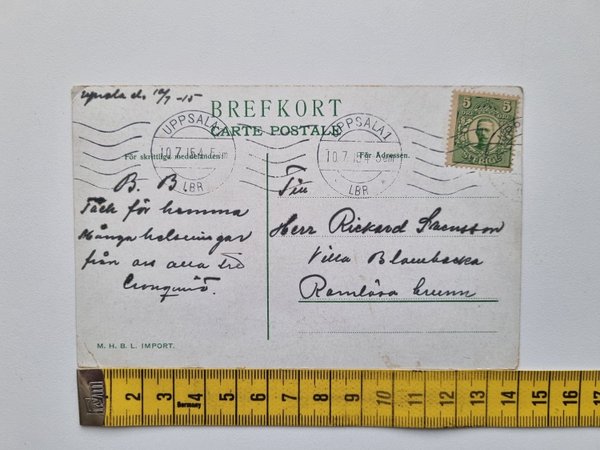 Upsala d. 10/7 -15
BREFKORT
CARTE POSTALE
5 5
SVERIGE
UPPSALA 1
10.7.15.4
LBR
UPPSALA 1
10.7.15.4
LBR
För skriftliga meddelanden.
För Adressen.
B. B.
Tack för
Många helsningar
från oss alla
Till
Herr Rickard Svensson
Villa
Ramlösa brunn
M. H. B. L. IMPORT.
2 3 4 5 6 7 8 9 10 11 12 13 14 15
Germany